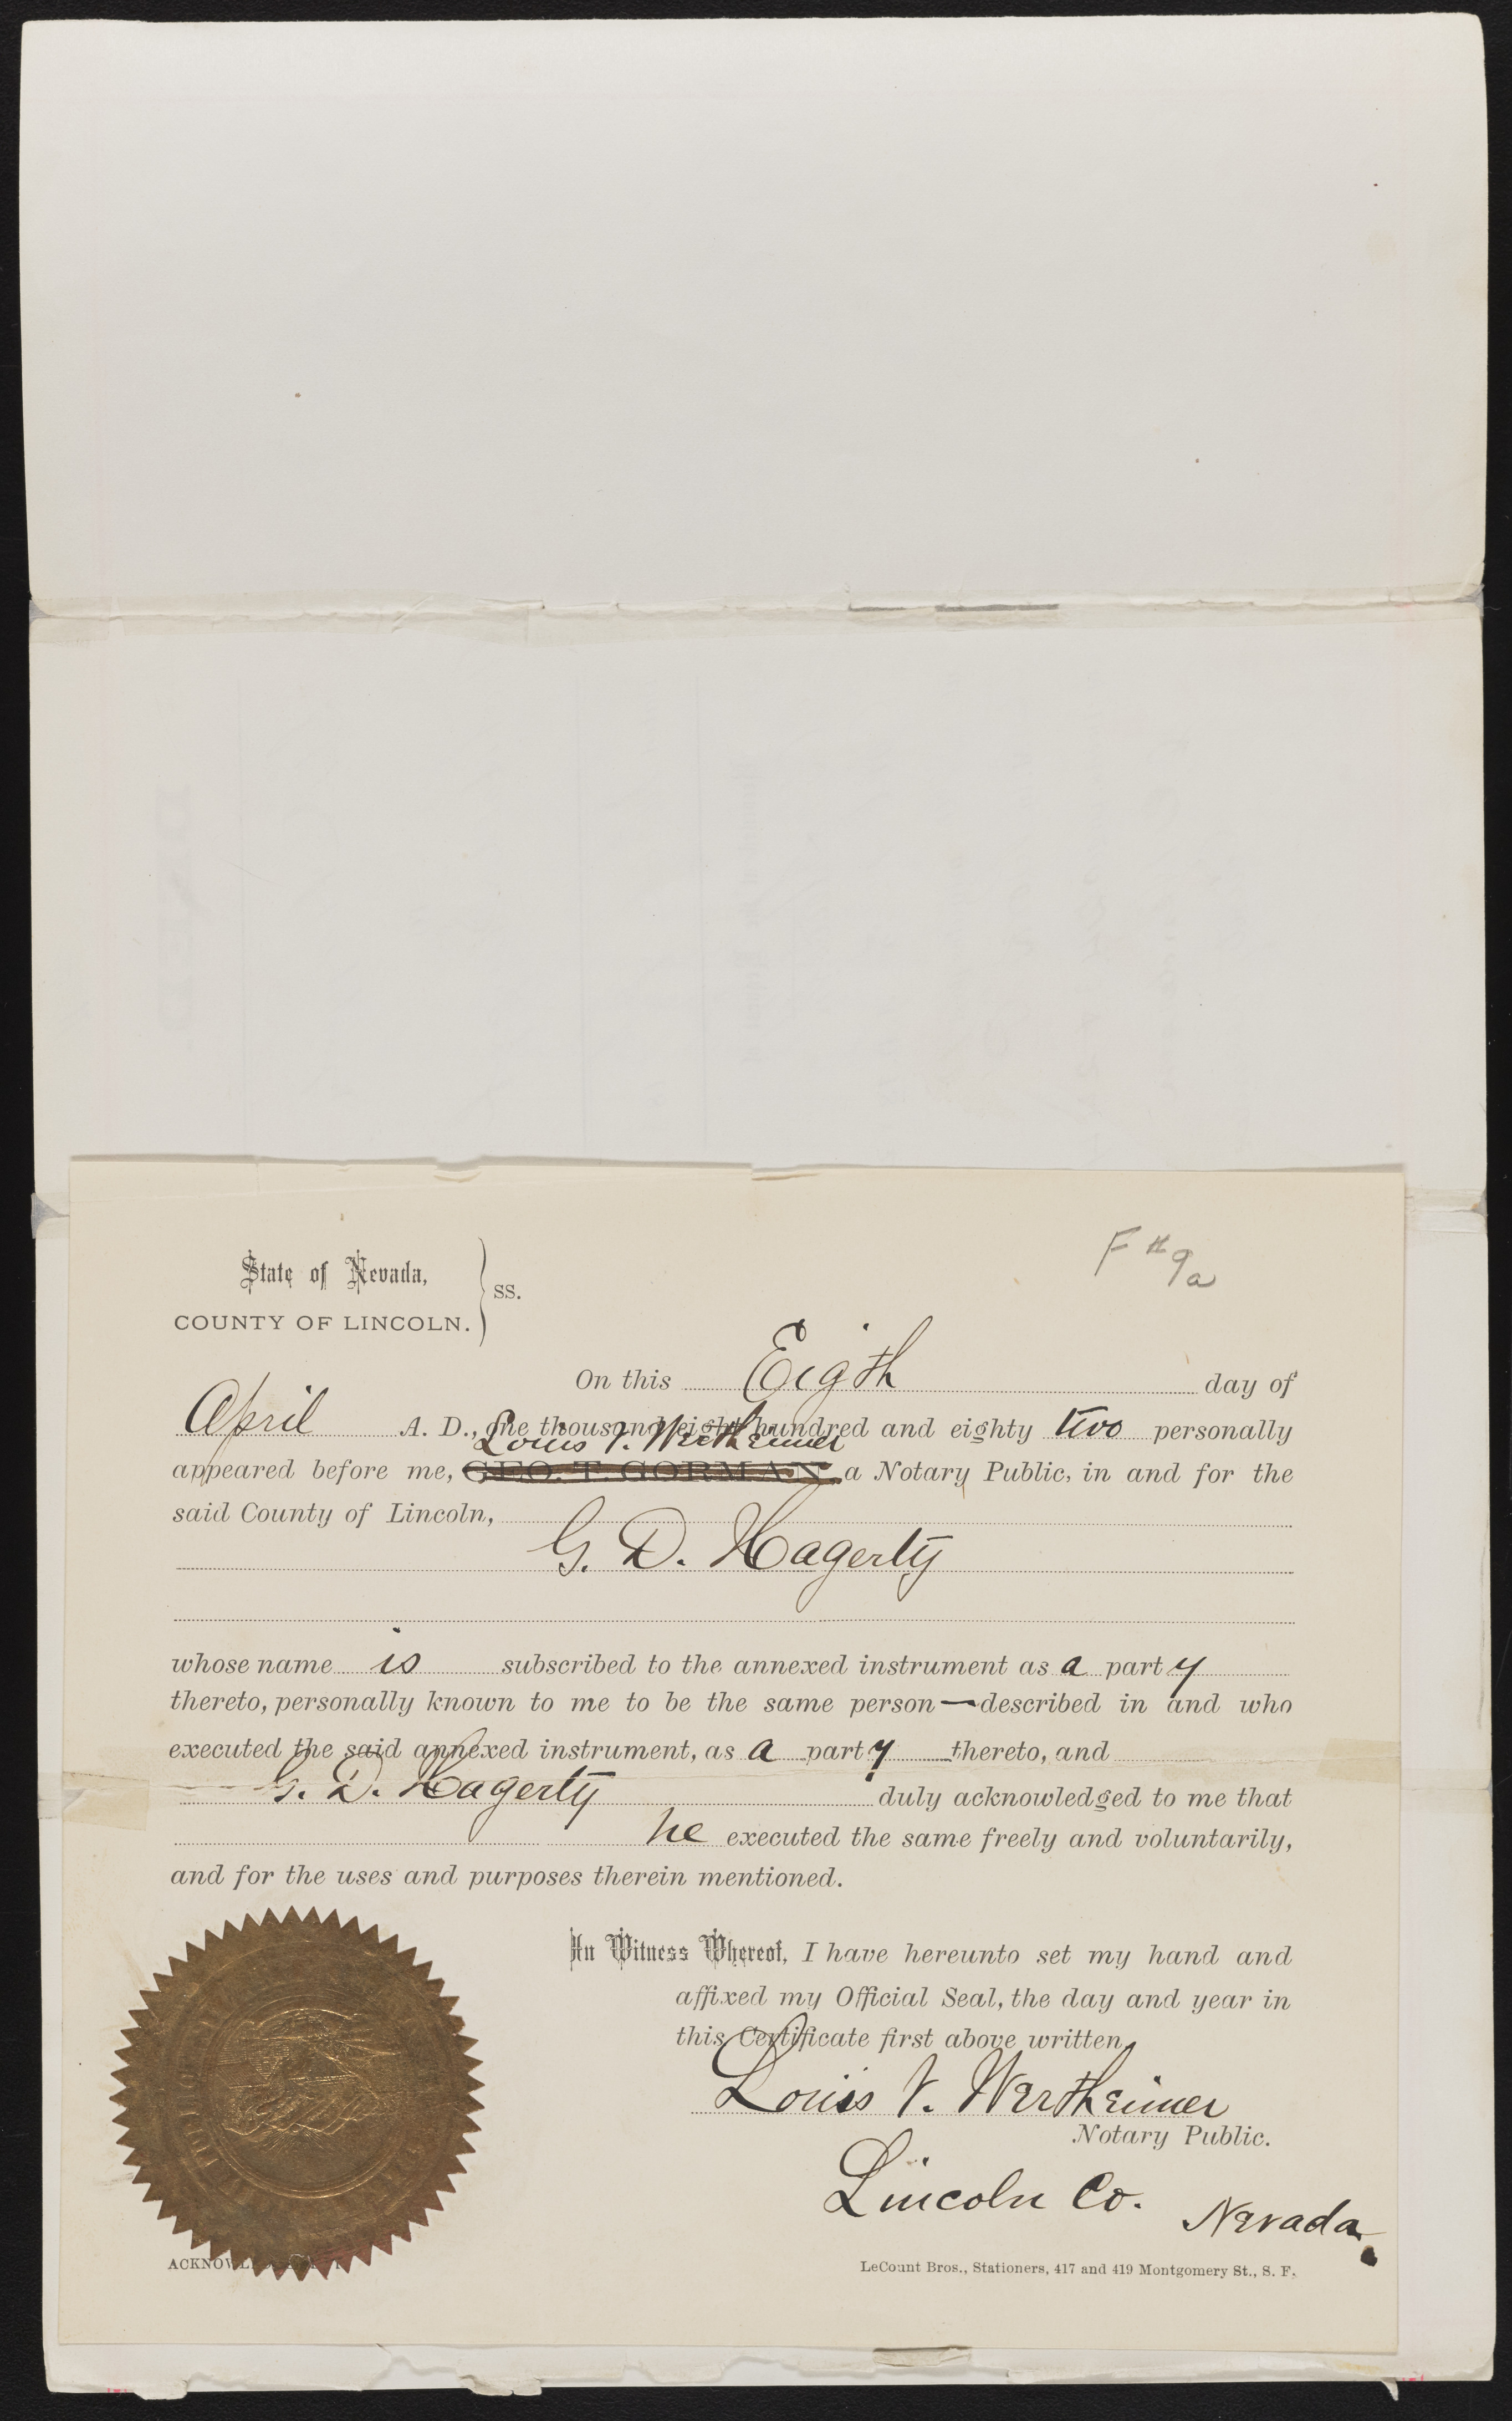 F #9a
State of Nevada,
COUNTY OF LINCOLN. } ss.
On this Eigth day of
April A. D., one thousand eight hundred and eighty two personally
Louis V. Wertheimer
appeared before me, GEO. T. GORMAN a Notary Public, in and for the
said County of Lincoln,
G. D. Hagerty
whose name is subscribed to the annexed instrument as a party
thereto, personally known to me to be the same person — described in and who
executed the said annexed instrument, as a party thereto, and
G. D. Hagerty duly acknowledged to me that
he executed the same freely and voluntarily,
and for the uses and purposes therein mentioned.
In Witness Whereof, I have hereunto set my hand and
affixed my Official Seal, the day and year in
this Certificate first above written.
Louis V. Wertheimer
Notary Public.
Lincoln Co. Nevada.
LeCount Bros., Stationers, 417 and 419 Montgomery St., S. F.